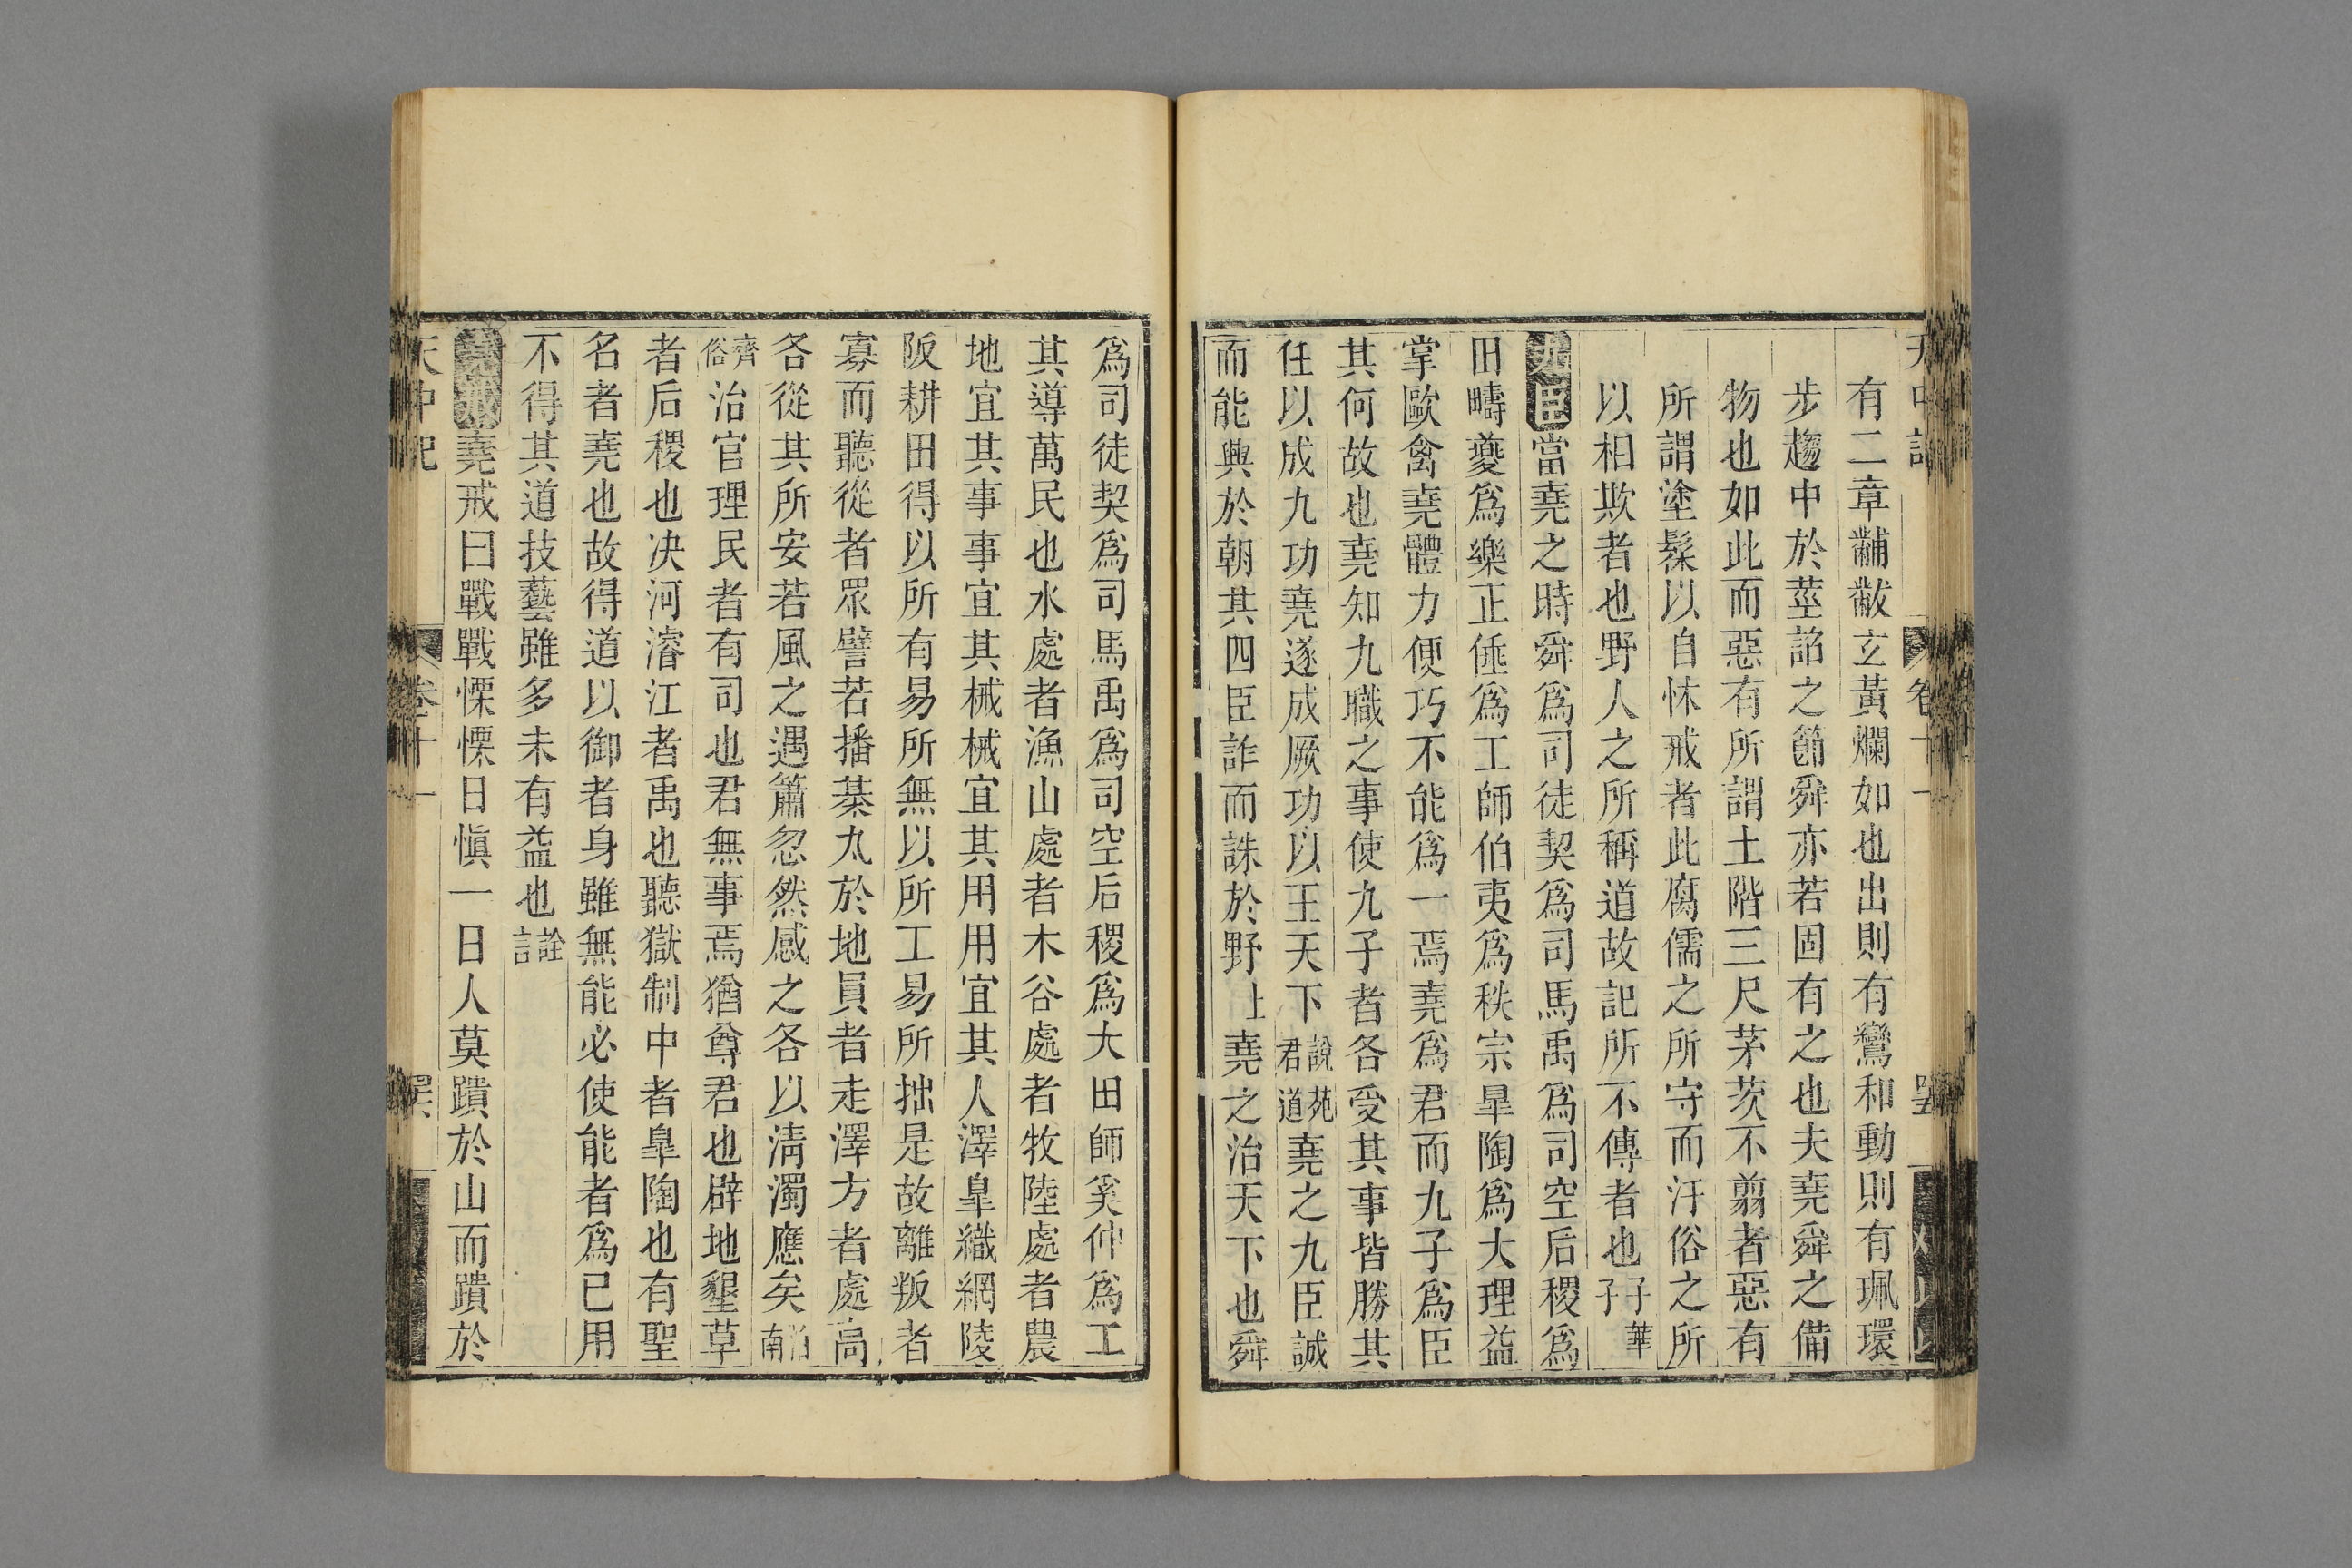 有二章黼黻玄黃爛如也出則有鸞和動則有珮環
步趨中於莖韶之節舜亦若固有之也夫堯舜之備
物也如此而惡有所謂土階三尺茅茨不翦者惡有
所謂塗髹以自怵戒者此腐儒之所守而汙俗之所
以相欺者也野人之所稱道故記所不傳者也子華子
九臣當堯之時舜爲司徒契爲司馬禹爲司空后稷爲
田疇夔爲樂正倕爲工師伯夷爲秩宗臯陶爲大理益
掌歐禽堯體力便巧不能爲一焉堯爲君而九子爲臣
其何故也堯知九職之事使九子者各受其事皆勝其
任以成九功堯遂成厥功以王天下說苑君道堯之九臣誠
而能興於朝其四臣詐而誅於野上堯之治天下也舜
爲司徒契爲司馬禹爲司空后稷爲大田師奚仲爲工
其導萬民也水處者漁山處者木谷處者牧陸處者農
地宜其事事宜其械械宜其用用宜其人澤臯織網陵
阪耕田得以所有易所無以所工易所拙是故離叛者
寡而聽從者眾譬若播棊丸於地員者走澤方者處高
各從其所安若風之遇簫忽然感之各以淸濁應矣淮南
齊俗治官理民者有司也君無事焉猶尊君也辟地墾草
者后稷也决河濬江者禹也聽獄制中者臯陶也有聖
名者堯也故得道以御者身雖無能必使能者爲已用
不得其道技藝雖多未有益也詮言
堯戒堯戒曰戰戰慄慄日愼一日人莫蹪於山而蹪於
天中記 卷十一